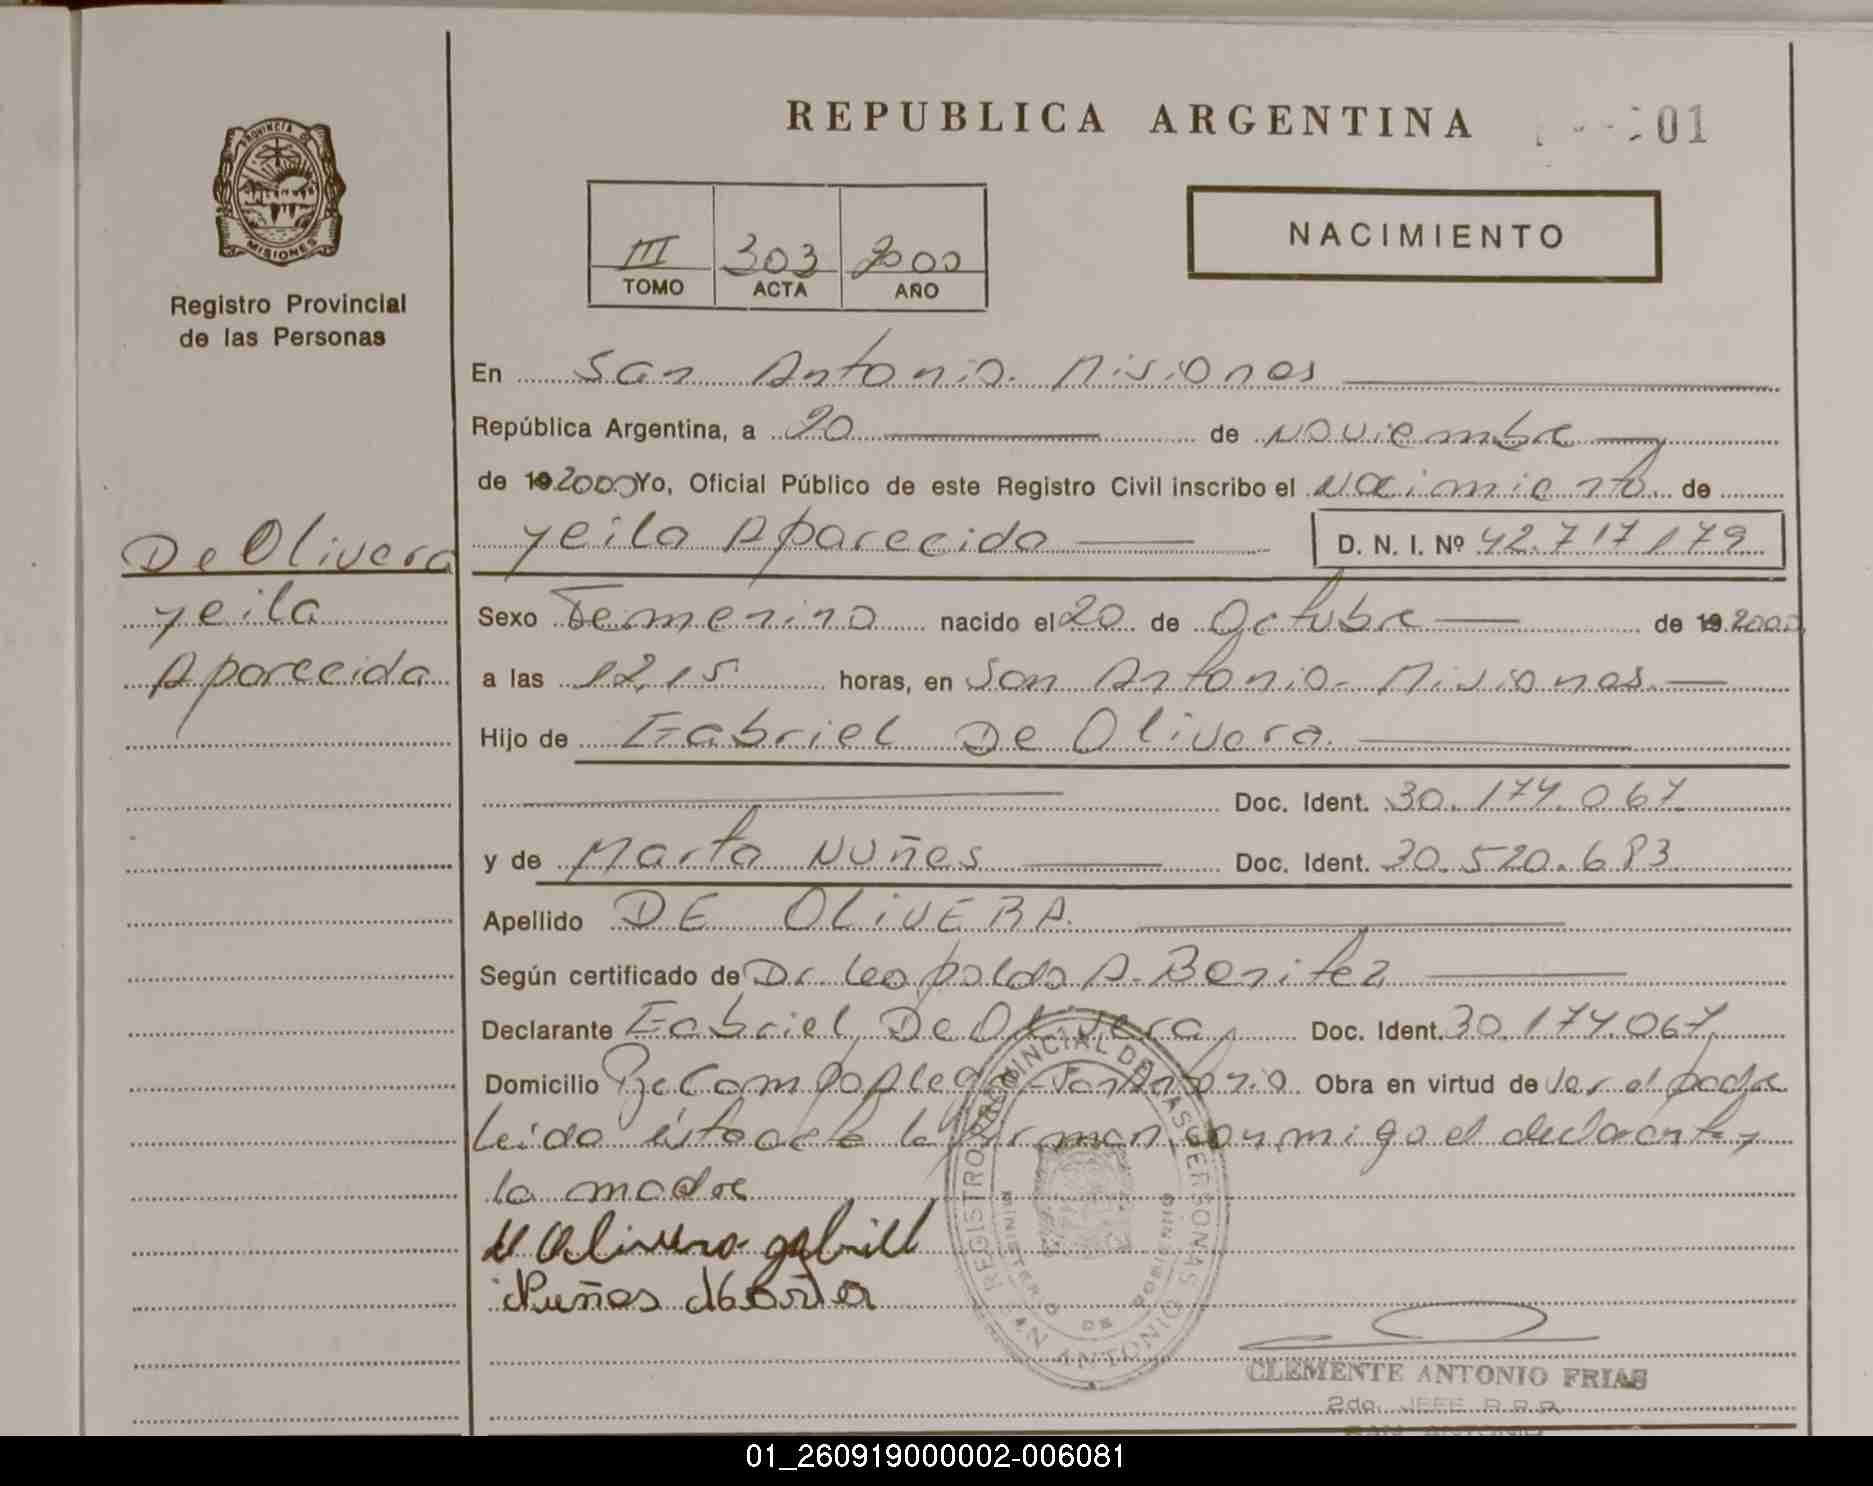 REPUBLICA ARGENTINA
01
PROVINCIA DE
MISIONES
Registro Provincial
de las Personas
III 303 2000
TOMO ACTA AÑO
NACIMIENTO
En San Antonio. Misiones
República Argentina, a 20 de Noviembre
de 19 2000 Yo, Oficial Público de este Registro Civil inscribo el Nacimiento de
Yeila Aparecida D. N. I. Nº 42.717.179
De Olivera
Yeila
Aparecida
Sexo Femenino nacido el 20 de Octubre de 19 2000
a las 12,15 horas, en San Antonio - Misiones.
Hijo de Gabriel De Olivera.
Doc. Ident. 30.174.067
y de Marta Nuñes Doc. Ident. 30.520.683
Apellido DE OLiVERA.
Según certificado de Dr. Leopoldo A. Benitez
Declarante Gabriel De Olivera Doc. Ident. 30.174.067
Domicilio San Antonio Obra en virtud de ser el padre
Leida esta acta la firman conmigo el declarante y
la madre
de Olivera gabriel
Nuñes Marta
REGISTRO PROVINCIAL DE LAS PERSONAS
MINISTERIO DE GOBIERNO
SAN ANTONIO
CLEMENTE ANTONIO FRIAS
2do. JEFE R.P.P.
SAN ANTONIO
01_260919000002-006081